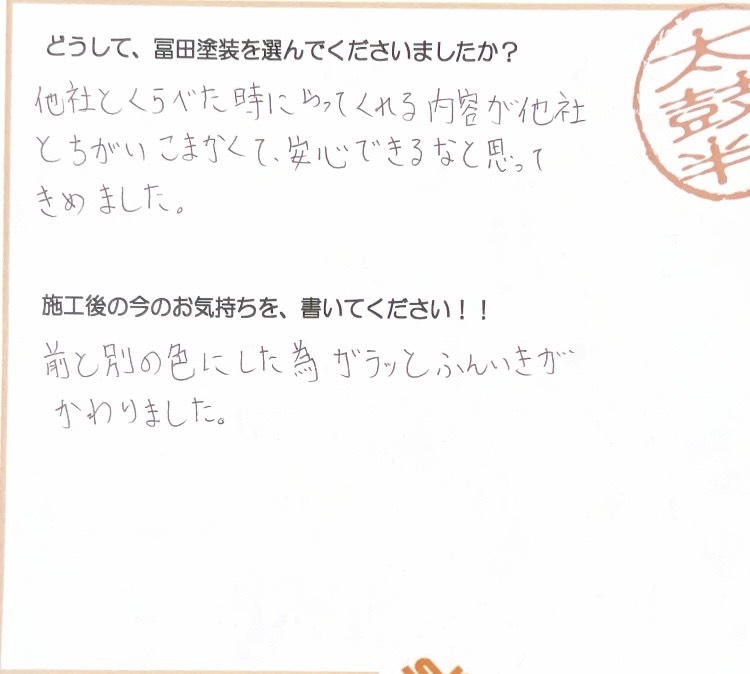 どうして、冨田塗装を選んでくださいましたか?
他社とくらべた時にやってくれる内容が他社
とちがいこまかくて、安心できるなと思って
きめました。
施工後の今のお気持ちを、書いてください!!
前と別の色にした為ガラッとふんいきが
かわりました。
太鼓半